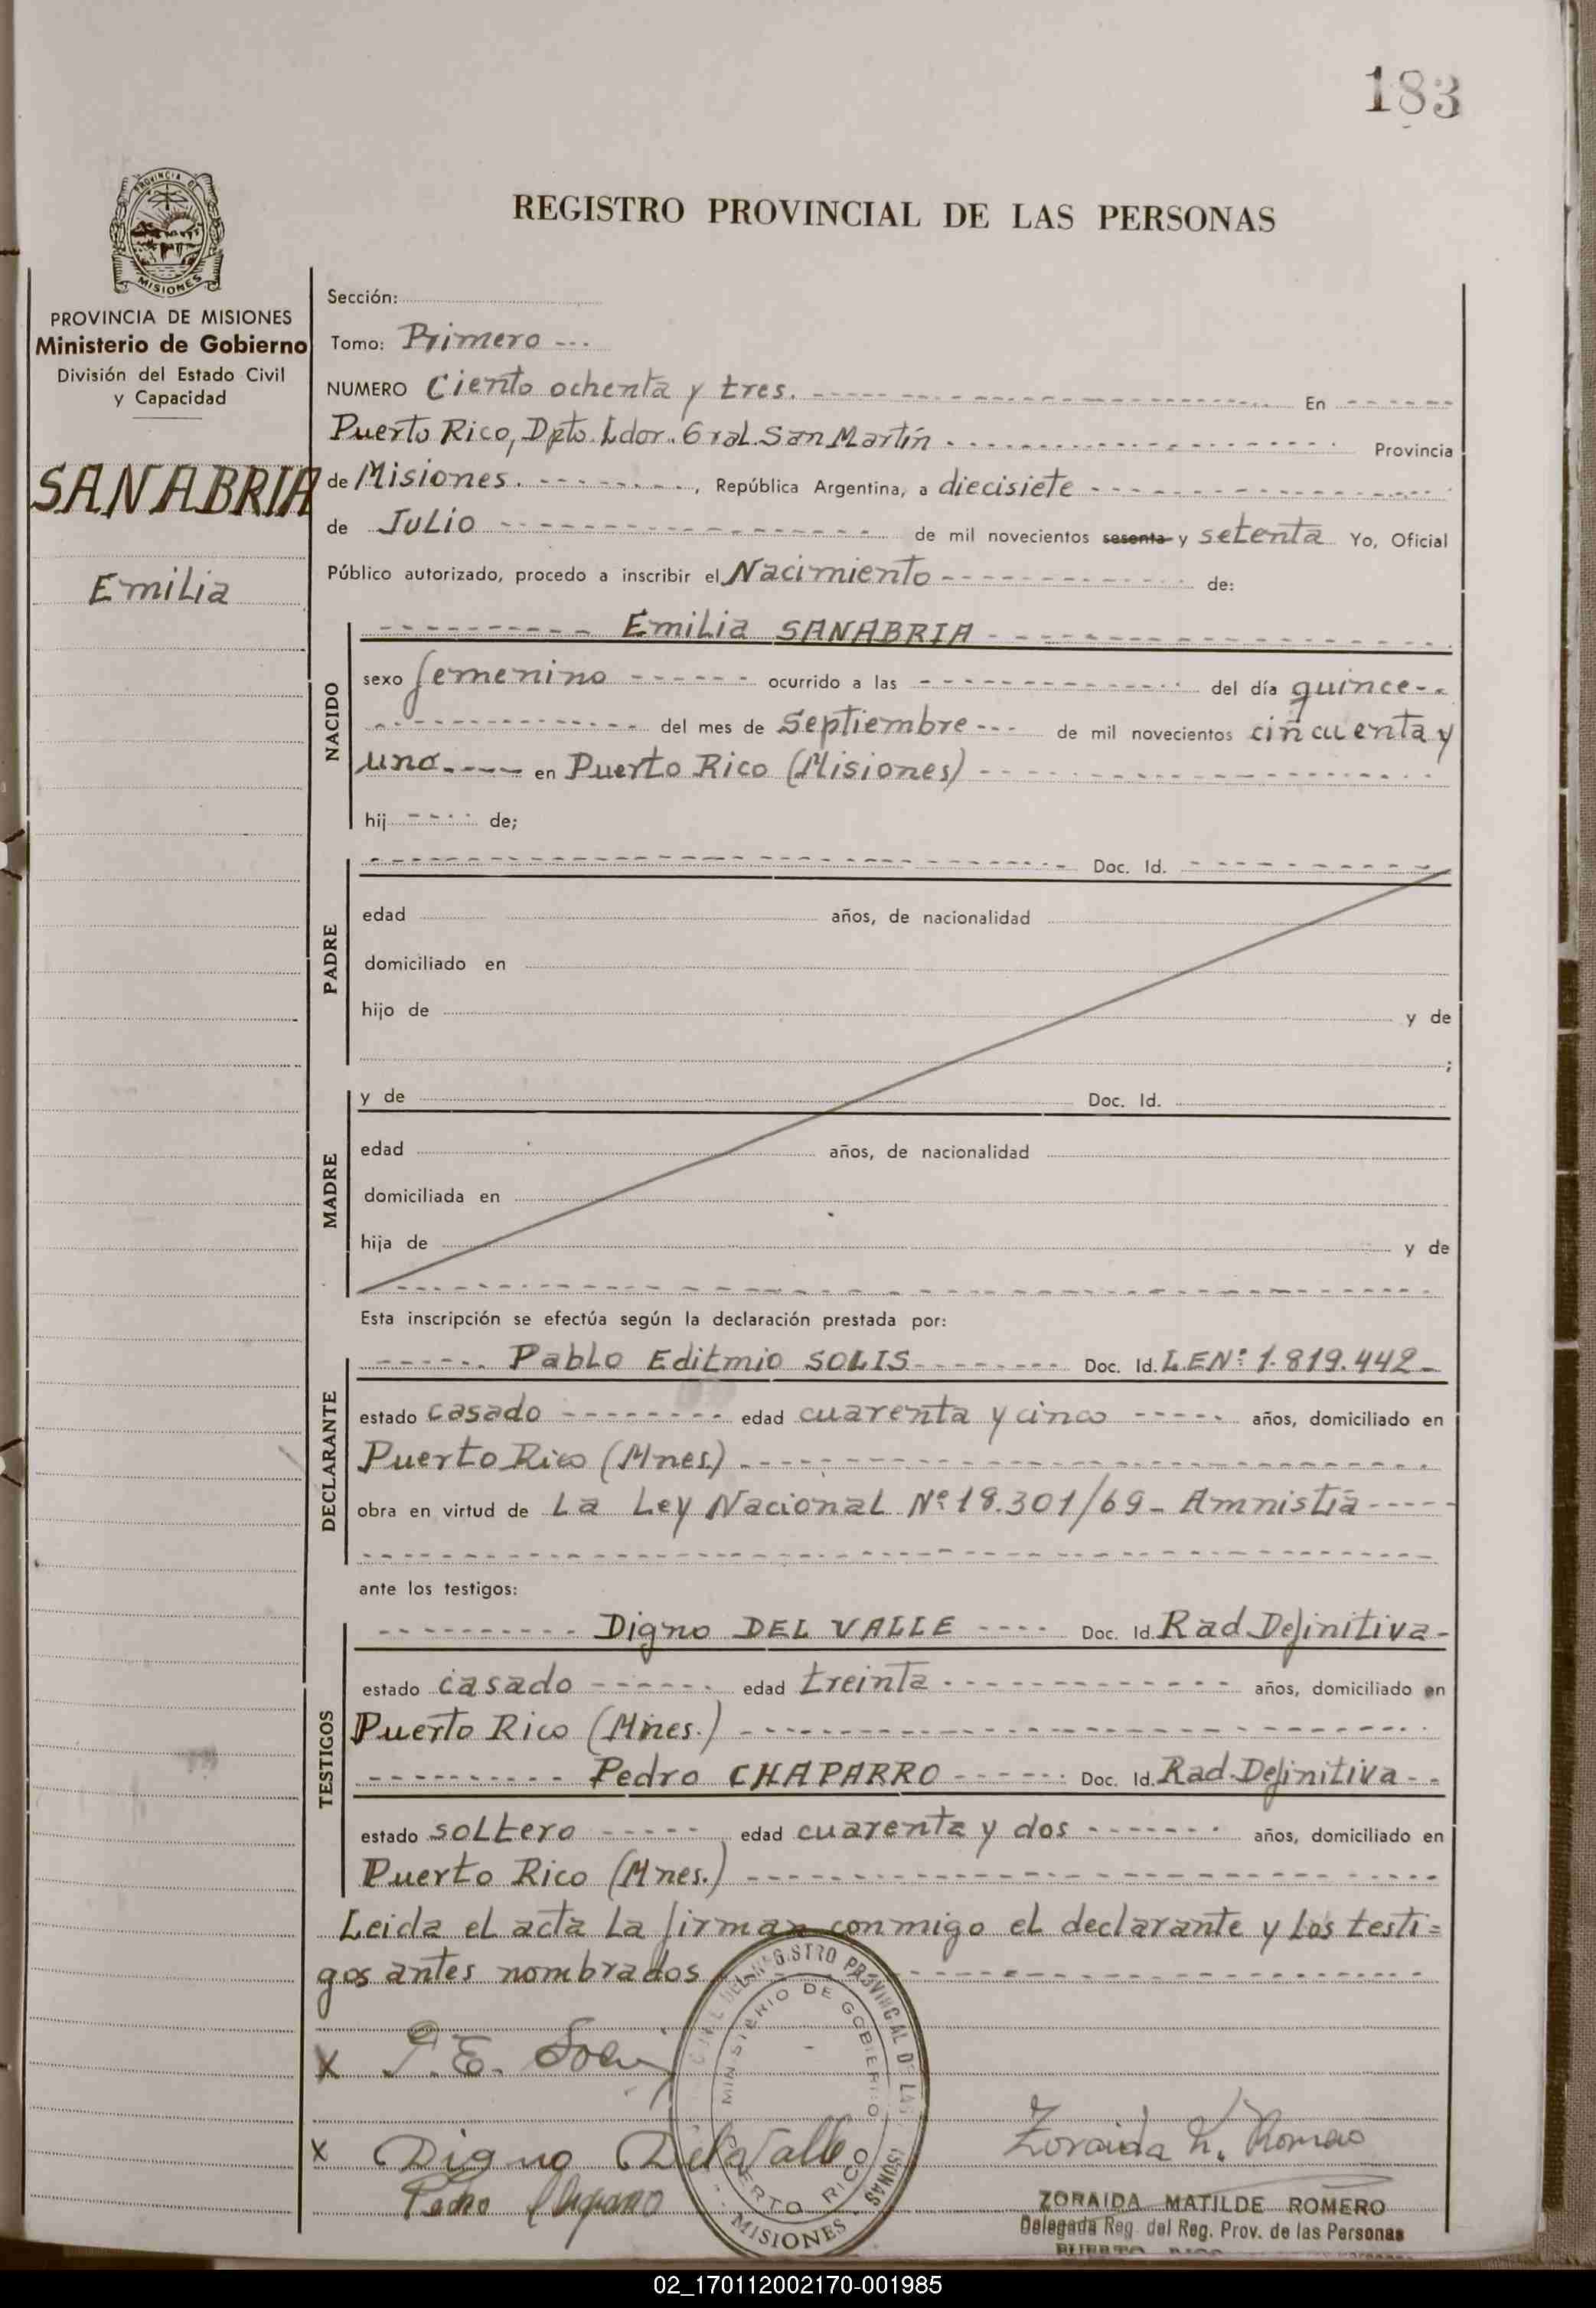 183
REGISTRO PROVINCIAL DE LAS PERSONAS
PROVINCIA DE
MISIONES
PROVINCIA DE MISIONES
Ministerio de Gobierno
División del Estado Civil
y Capacidad
SANABRIA
Emilia
Sección:
Tomo: Primero ---
NUMERO Ciento ochenta y tres. En
Puerto Rico, Dpto. Ldor. Gral. San Martín. Provincia
de Misiones. , República Argentina, a diecisiete
de Julio de mil novecientos sesenta y setenta Yo, Oficial
Público autorizado, procedo a inscribir el Nacimiento de:
NACIDO
Emilia SANABRIA
sexo femenino ocurrido a las del día quince
del mes de Septiembre de mil novecientos cincuenta y
uno en Puerto Rico (Misiones)
hij de;
PADRE
Doc. Id.
edad años, de nacionalidad
domiciliado en
hijo de y de
;
MADRE
y de Doc. Id.
edad años, de nacionalidad
domiciliada en
hija de y de
Esta inscripción se efectúa según la declaración prestada por:
DECLARANTE
Pablo Editmio SOLIS Doc. Id. L.E.Nº: 1.819.442
estado casado edad cuarenta y cinco años, domiciliado en
Puerto Rico (Mnes.)
obra en virtud de La Ley Nacional Nº 18.301/69 - Amnistía
ante los testigos:
TESTIGOS
Digno DEL VALLE Doc. Id. Rad. Definitiva
estado casado edad treinta años, domiciliado en
Puerto Rico (Mnes.)
Pedro CHAPARRO Doc. Id. Rad. Definitiva
estado soltero edad cuarenta y dos años, domiciliado en
Puerto Rico (Mnes.)
Leida el acta la firman conmigo el declarante y los testi=
gos antes nombrados
REGISTRO PROVINCIAL DE LAS
MINISTERIO DE GOBIERNO
PUERTO RICO
MISIONES
X P. E. Solis
X Digno Del Valle
Pedro Chaparro
Zoraida M. Romero
ZORAIDA MATILDE ROMERO
Delegada Reg. del Reg. Prov. de las Personas
PUERTO RICO
02_170112002170-001985